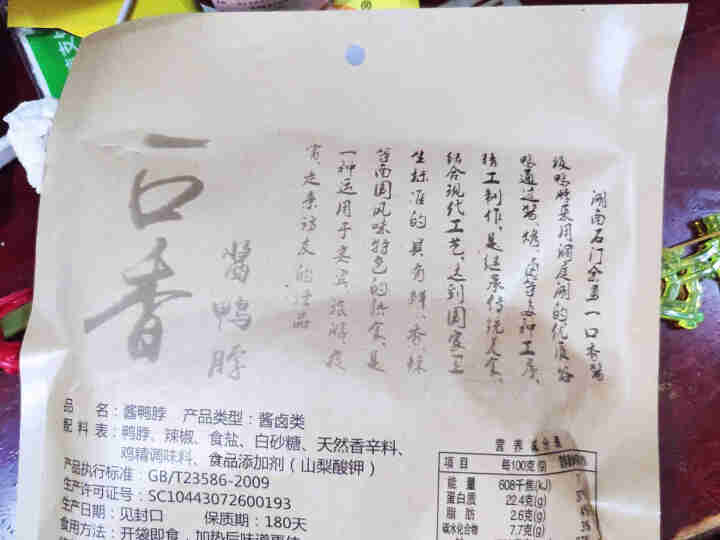 一口香
酱鸭脖
湖南石门
一口香酱
级鸭脖采用洞庭湖的优质谷
鸭通过酱、
精工制作,是继承传统美食、
结合现代工艺,达到国家卫
生标准的具有鲜、香、辣
等南国风味特色的熟食,是
一种运用于宴宾、旅游投
宵、走亲访友的佳品
品 名:酱鸭脖 产品类型:酱卤类
配 料 表:鸭脖、辣椒、食盐、白砂糖、天然香辛料、
鸡精调味料、食品添加剂(山梨酸钾)
产品执行标准:GB/T23586-2009
生产许可证号:SC10443072600193
生产日期:见封口 保质期:180天
食用方法:开袋即食,加热后味道更佳
营养成分表
项目 每100克(g)
能 量 608千焦(kJ)
蛋白质 22.4克(g)
脂 肪 2.6克(g)
碳水化合物 7.7克(g)